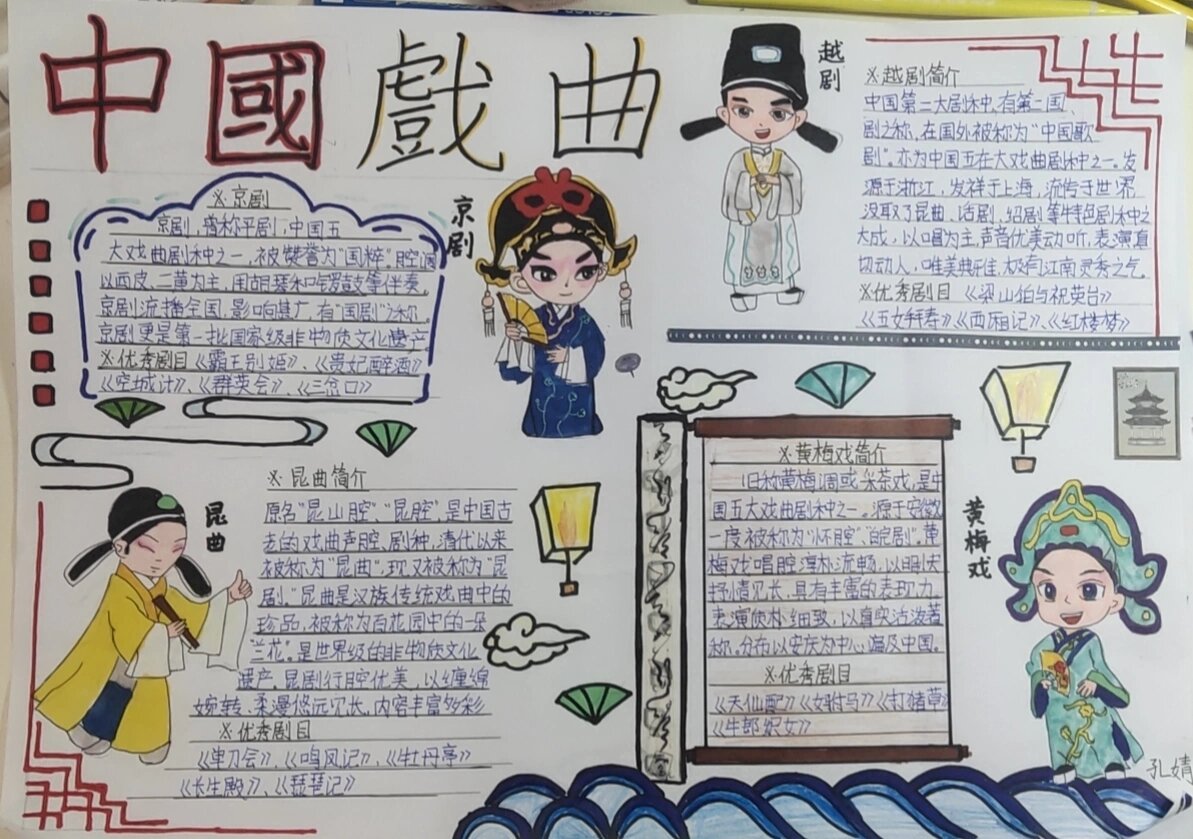 中國戲曲
※京剧
京剧，曾称平剧，中国五
大戏曲剧种之一，被赞誉为"国粹"。腔调
以西皮、二黄为主，用胡琴和锣鼓等伴奏，
京剧流播全国，影响甚广，有"国剧"之称。
京剧更是第一批国家级非物质文化遗产
※优秀剧目《霸王别姬》、《贵妃醉酒》
《空城计》、《群英会》、《三岔口》
京剧
越剧
※越剧简介
中国第二大剧种，有第二国
剧之称，在国外被称为"中国歌
剧"。亦为中国五在大戏曲剧种之一。发
源于浙江，发祥于上海，流传于世界
汲取了昆曲、话剧、绍剧等特色剧种之
大成，以唱为主，声音优美动听，表演真
切动人，唯美典雅，极有江南灵秀之气。
※优秀剧目《梁山伯与祝英台》
《五女拜寿》《西厢记》、《红楼梦》
昆曲
※昆曲简介
原名"昆山腔"、"昆腔"，是中国古
老的戏曲声腔、剧种，清代以来
被称为"昆曲"，现又被称为"昆
剧。"昆曲是汉族传统戏曲中的
珍品，被称为百花园中的一朵
"兰花"。是世界级的非物质文化
遗产。昆剧行腔优美，以缠绵
婉转、柔漫悠远见长。内容丰富多彩
※优秀剧目
《单刀会》、《鸣凤记》、《牡丹亭》
《长生殿》、《琵琶记》
※黄梅戏简介
旧称黄梅调或采茶戏，是中
国五大戏曲剧种之一。源于安徽
一度被称为"怀腔""皖剧"。黄
梅戏唱腔淳朴流畅，以明快
抒情见长，具有丰富的表现力
表演质朴细致，以真实活泼著
称。分布以安庆为中心，遍及中国。
※优秀剧目
《天仙配》《女驸马》《打猪草》
《牛郎织女》
黄梅戏
孔婧